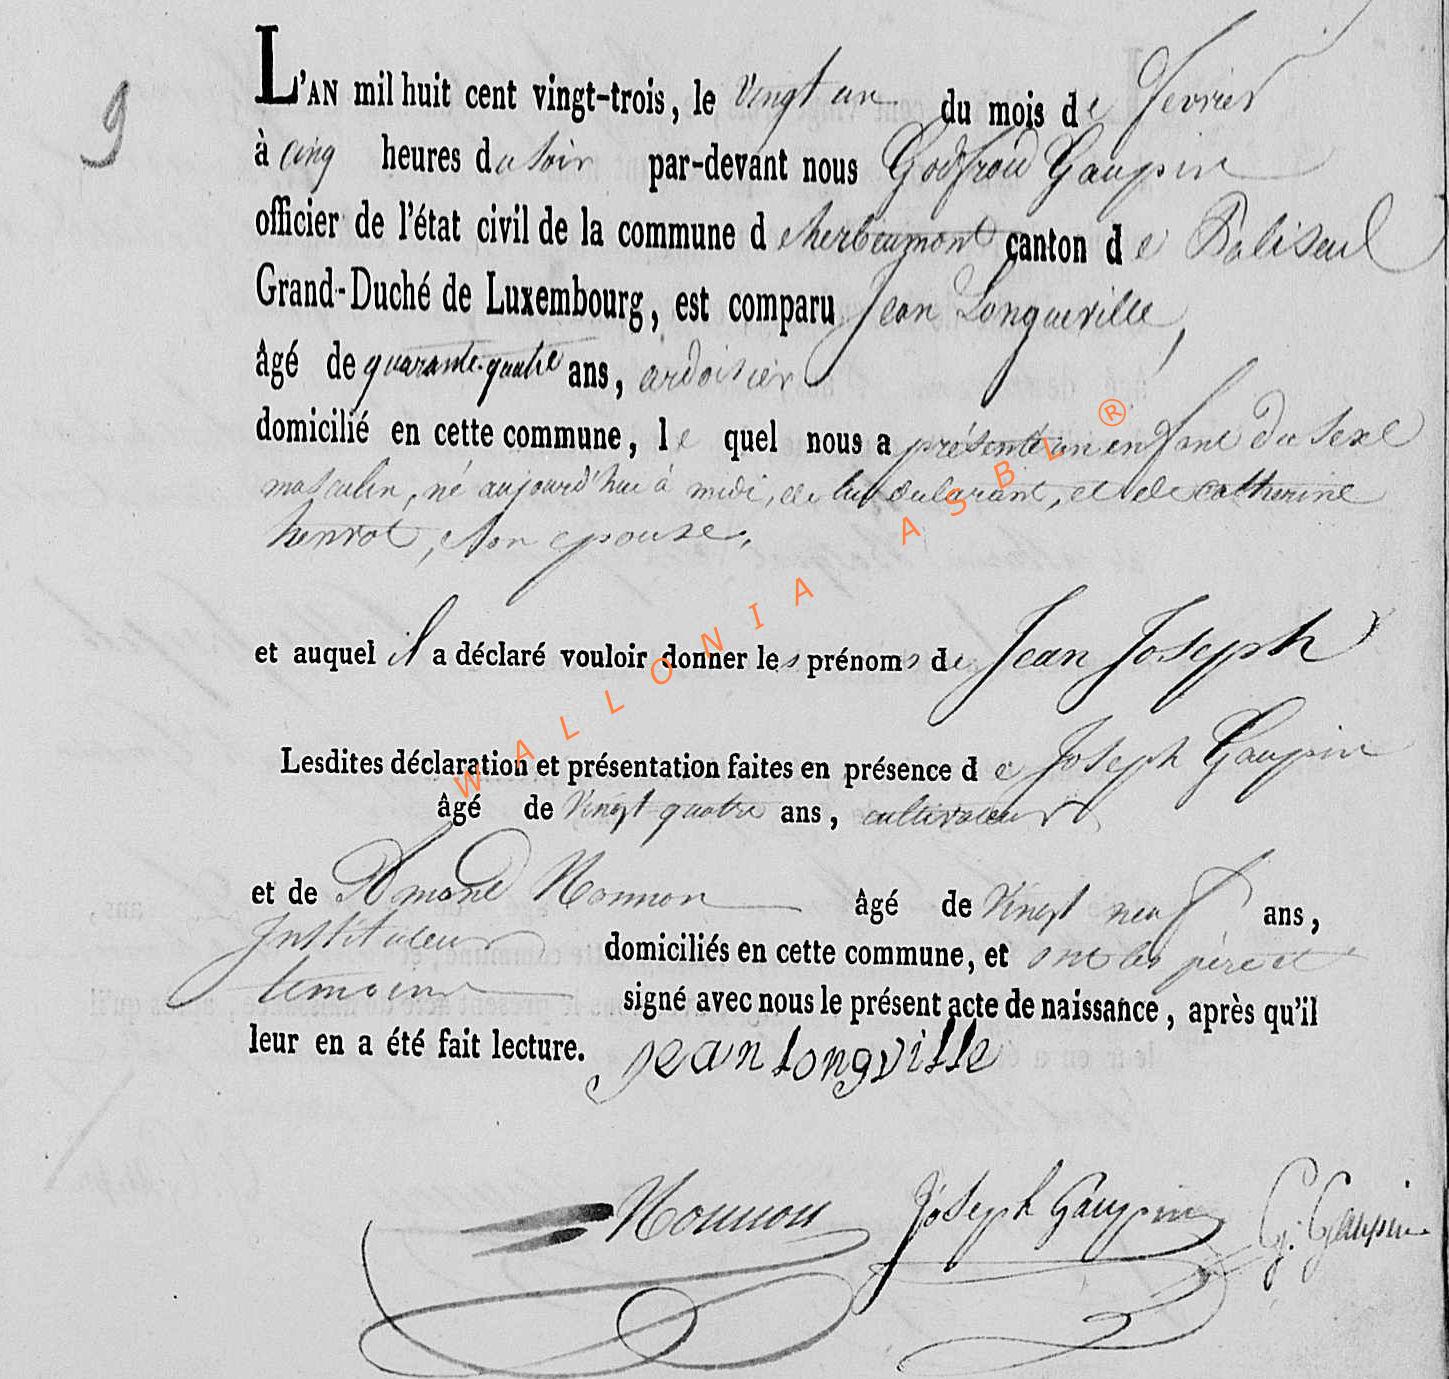 9
L'AN mil huit cent vingt-trois, le vingt un du mois de fevrier
à cinq heures du soir par-devant nous Godfroid Gaupin
officier de l'état civil de la commune d'herbeumont canton de Paliseul
Grand-Duché de Luxembourg, est comparu Jean Longueville,
âgé de quarante-quatre ans, ardoisier
domicilié en cette commune, le quel nous a présenté un enfant du sexe
masculin, né aujourd'hui à midi, de lui déclarant, et de catherine
henrot, son epouse,
et auquel il a déclaré vouloir donner les prénoms de Jean Joseph
Lesdites déclaration et présentation faites en présence de Joseph Gaupin
âgé de vingt quatre ans, cultivateur
et de Amand Nonnon âgé de vingt neuf ans,
Instituteur domiciliés en cette commune, et ont les père et
temoins signé avec nous le présent acte de naissance, après qu'il
leur en a été fait lecture. jean longville
Nonnon Joseph Gaupin G. Gaupin
WALLONIA ASBL ®